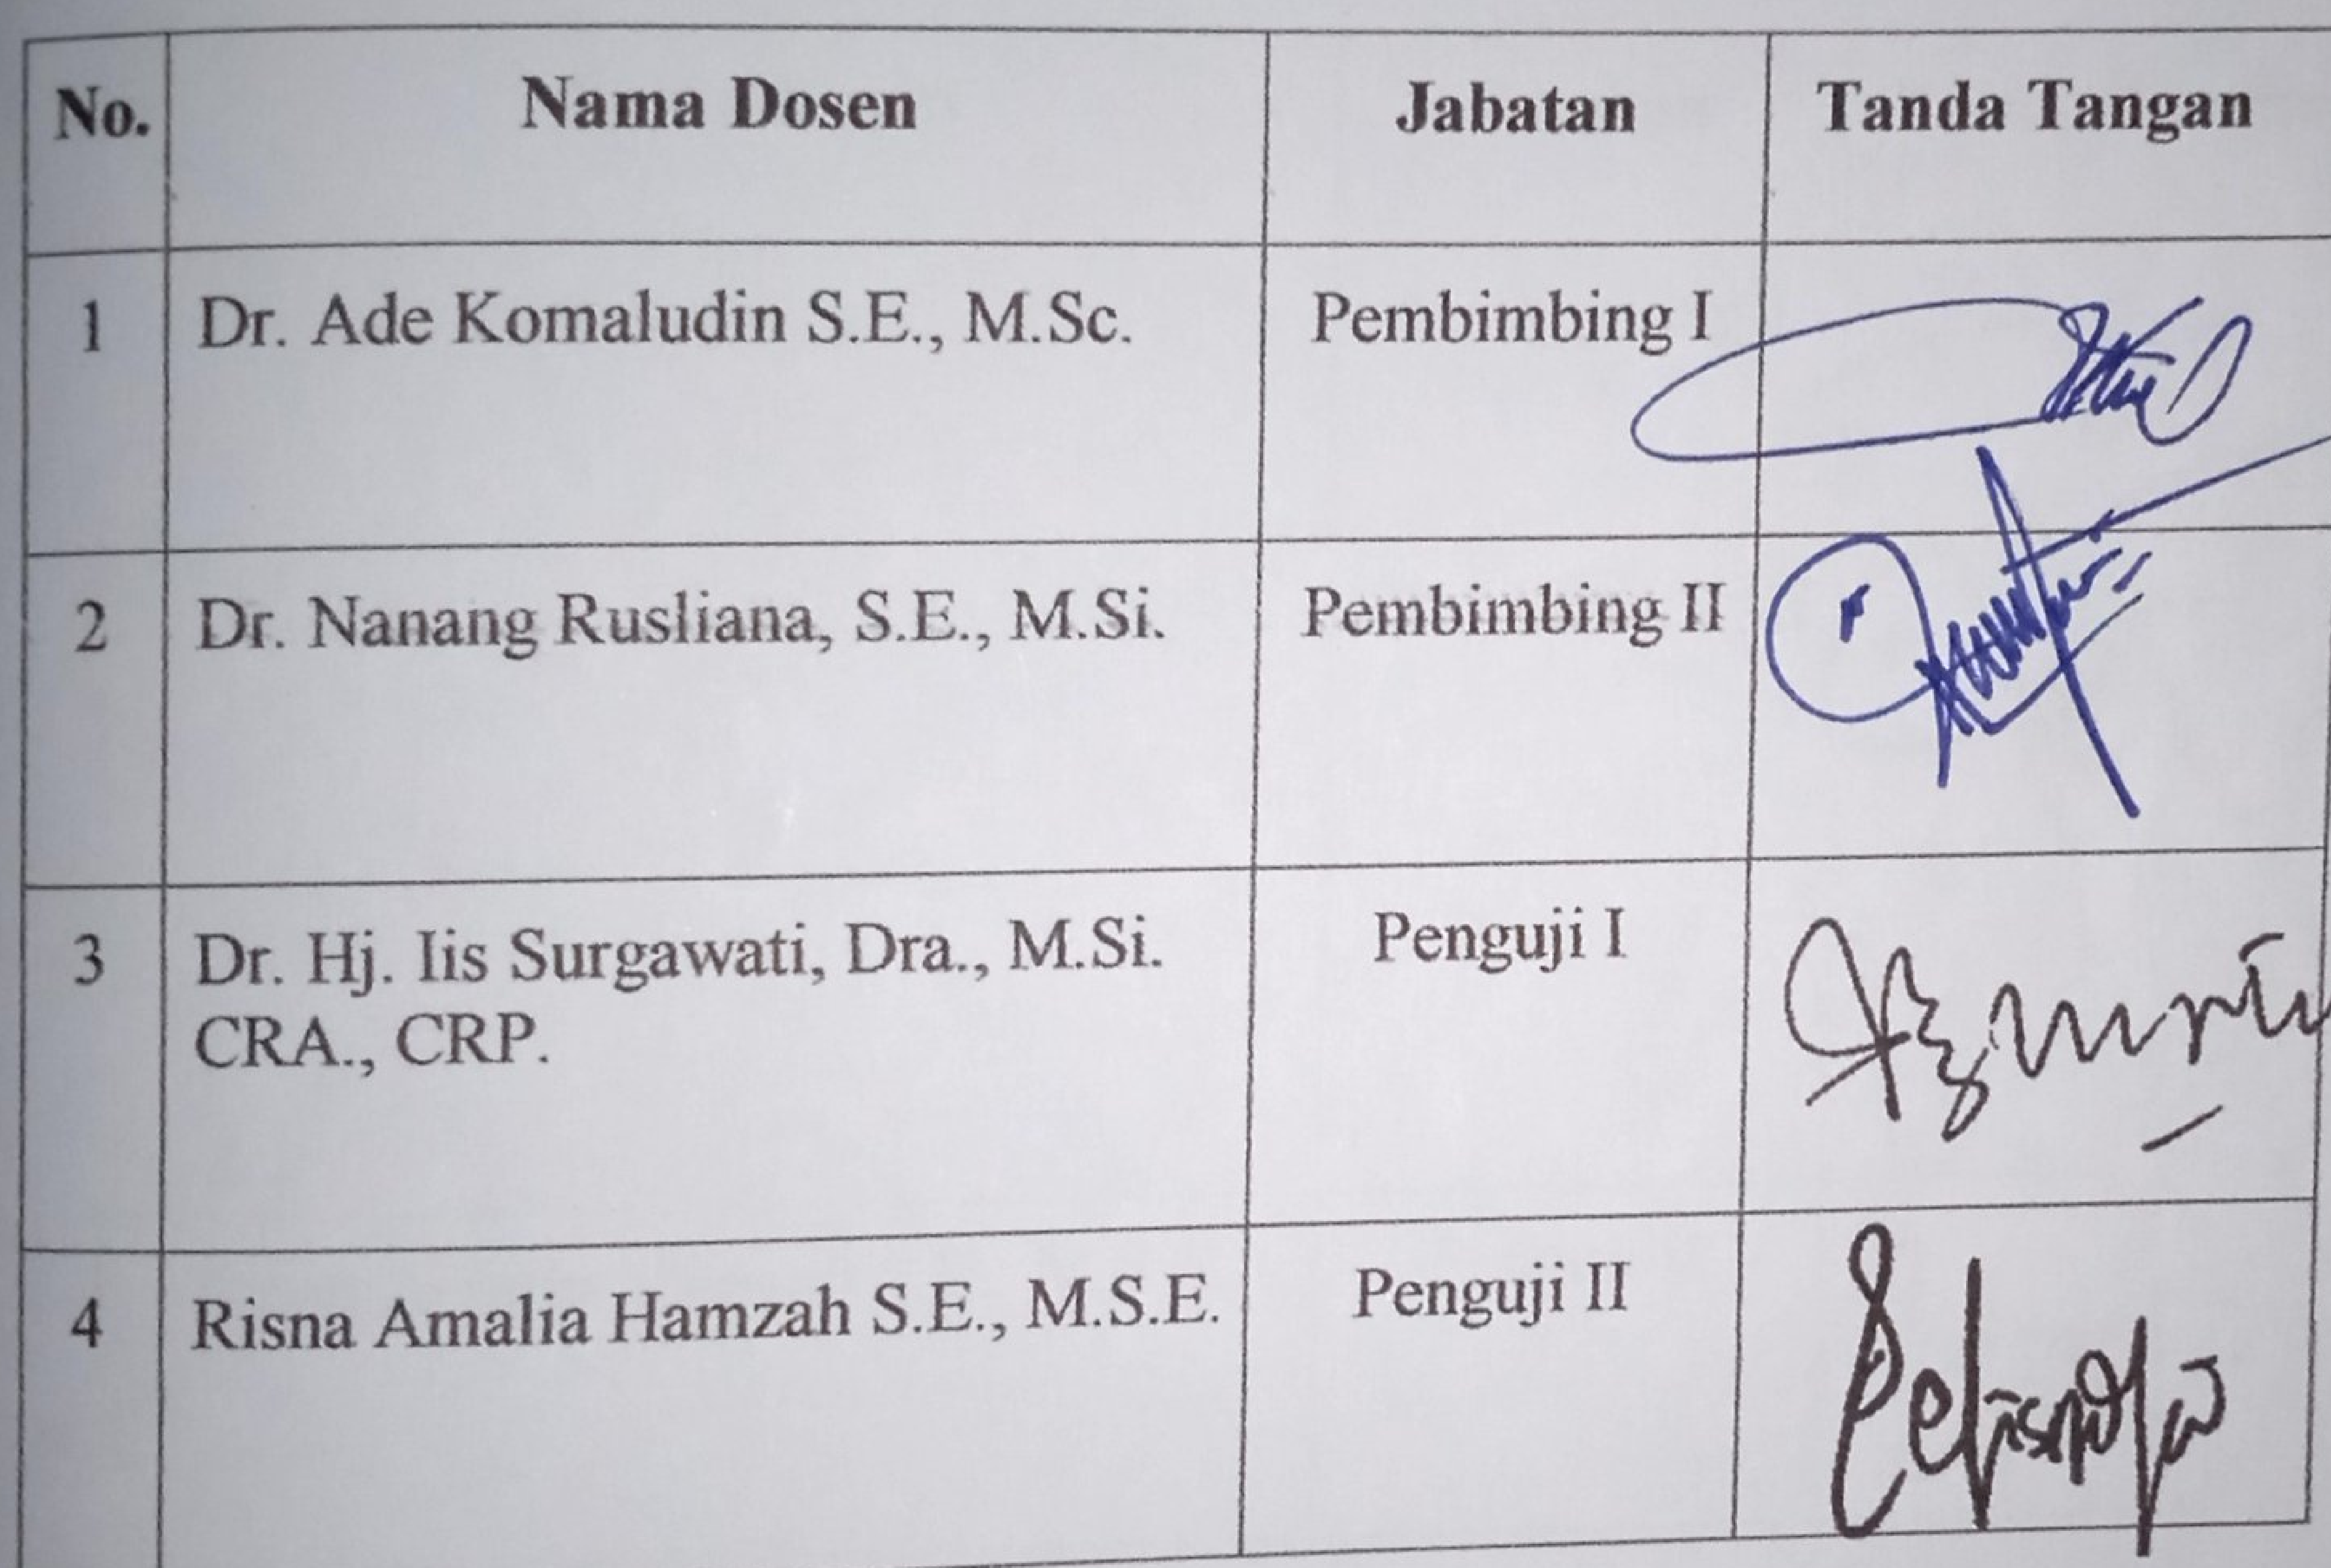 No. Nama Dosen Jabatan Tanda Tangan
1 Dr. Ade Komaludin S.E., M.Sc. Pembimbing I
2 Dr. Nanang Rusliana, S.E., M.Si. Pembimbing II
3 Dr. Hj. Iis Surgawati, Dra., M.Si. Penguji I
CRA., CRP.
4 Risna Amalia Hamzah S.E., M.S.E. Penguji II